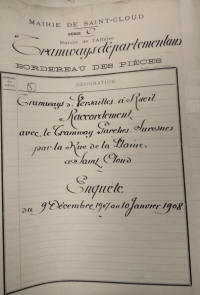 MAIRIE DE SAINT-CLOUD
SÉRIE O
Nature de l'Affaire
Tramways départementaux
BORDEREAU DES PIÈCES
DÉSIGNATION
Tramways de Versailles à Rueil
Raccordement
avec le Tramway Garches Suresnes
par la Rue de la Plaine
à Saint Cloud
Enquête
du 9 Décembre 1907 au 10 Janvier 1908